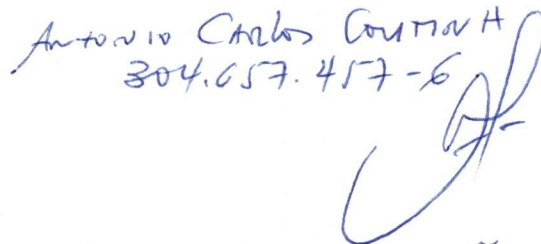 Antonio Carlos Coutinh
304.657.457-6